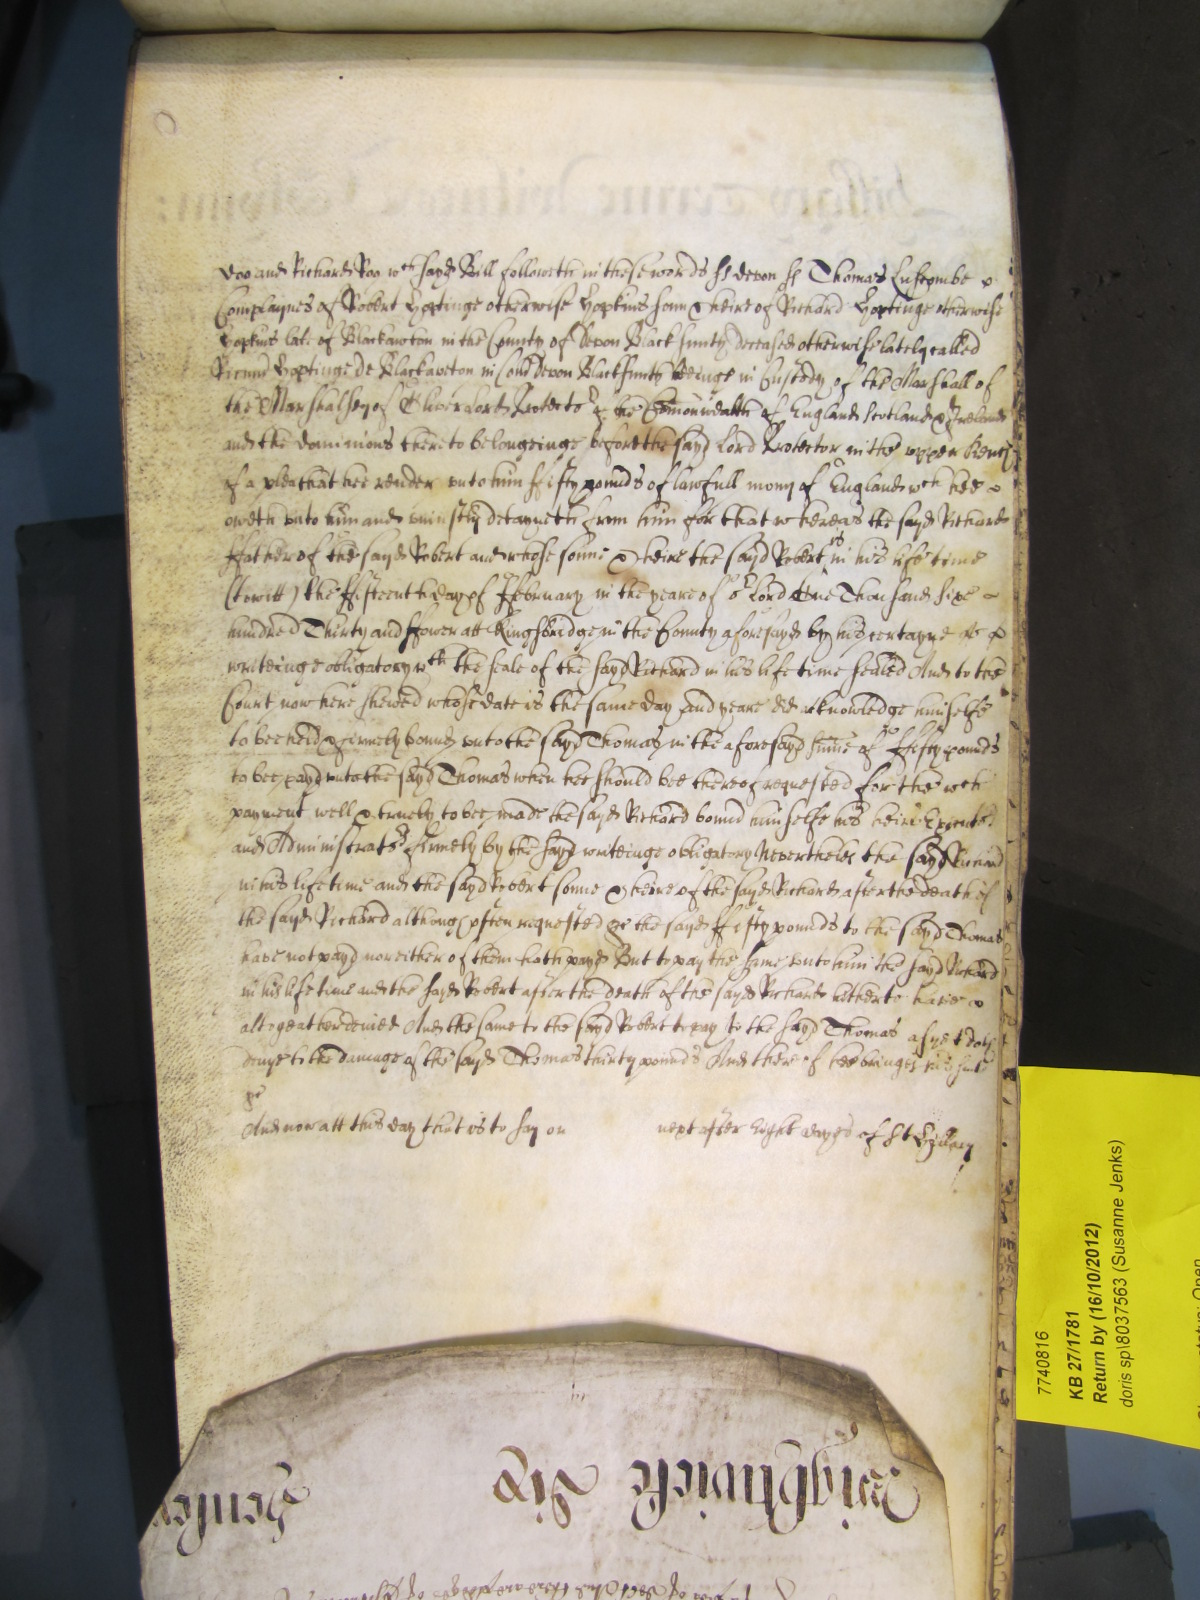 Doo and Richard Roo wch sayd Bill followeth in these words ss devon ss Thomas Luscombe
Complaynes of Robert Hoptinge otherwise Hopkins sonn & heire of Richard Hoptinge otherwise
Hopkins late of Blackawton in the County of Devon Blacksmyth deceased otherwise lately called
Hoptinge de Blackawton in Com Devon Blacksmyth beinge in Custody of the Marshall of
the Marshalsey of Oliver Lord Protector of the Comonwealth of England Scotland & Ireland
and the dominions thereto belongeinge before the sayd Lord Protector in the upper Bench
of a plea that hee render unto him ffifty pounds of lawfull mony of England wch hee
oweth unto him and uniustly detayneth from him for that whereas the sayd Richard
ffather of the sayd Robert and whose sonne & heire the sayd Robert is in his life time
(to witt) the ffifteenth day of ffebruary in the yeare of or Lord One Thousand sixe
hundred Thirty and ffower att Kingsbridge in the County aforesayd by his certayne
writeinge obligatory wth the seale of the sayd Richard in his life time sealed And to the
Court now here shewed whose date is the same day and yeare did acknowledge himselfe
to bee held & firmely bound unto the sayd Thomas in the aforesayd sume of ffifty pounds
to bee payd unto the sayd Thomas when hee should bee thereof requested for the wch
payment well & truely to bee made the sayd Richard bound himselfe his heires Executrs
and Administratrs firmely by the sayd writeinge obligatory Nevertheles the sayd Richard
in his life time and the sayd Robert sonne & heire of the sayd Richard after the death of
the sayd Richard although often requested &c the sayd ffifty pounds to the sayd Thomas
have not payd nor either of them hath payd But to pay the same unto him the sayd Richard
in his life time and the sayd Robert after the death of the sayd Richard hitherto have
altogeather denied And the same to the sayd Robert to pay to the sayd Thomas as yet doth
denye to the damage of the sayd Thomas thirty pounds And thereof hee bringes his suite
&c
And now att this day that is to say on next after Eight dayes of St Hillary
7740816
KB 27/1781
Return by (16/10/2012)
doris sp\8037563 (Susanne Jenks)
Open
Six